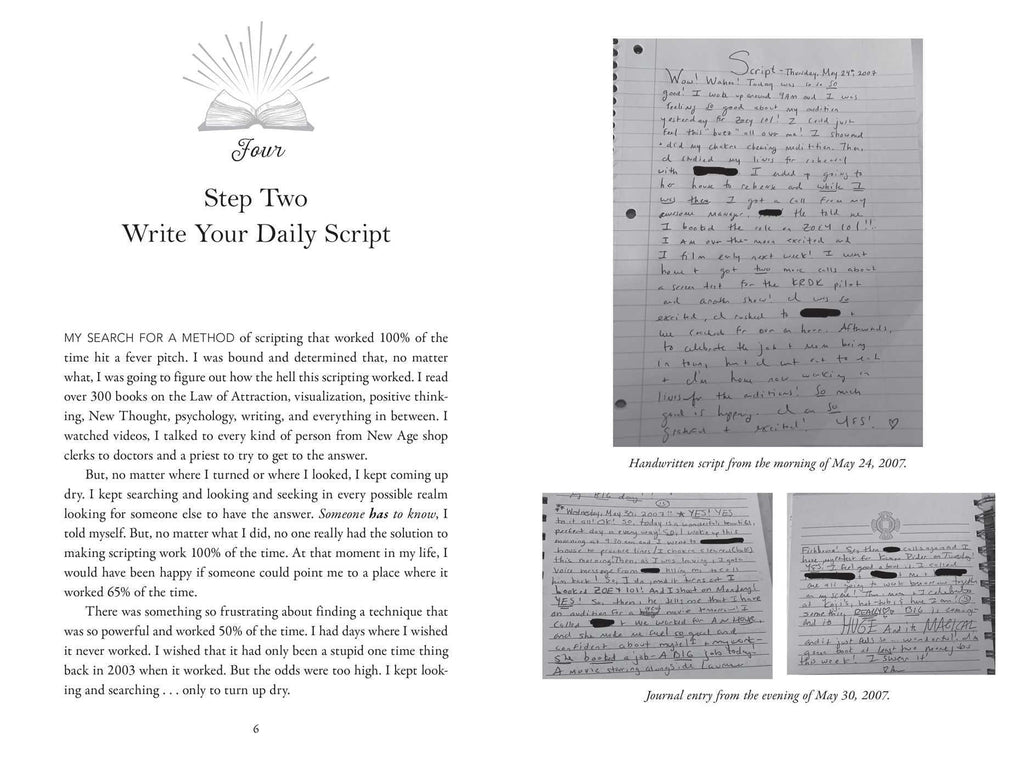 Four
Step Two
Write Your Daily Script
MY SEARCH FOR A METHOD of scripting that worked 100% of the
time hit a fever pitch. I was bound and determined that, no matter
what, I was going to figure out how the hell this scripting worked. I read
over 300 books on the Law of Attraction, visualization, positive think-
ing, New Thought, psychology, writing, and everything in between. I
watched videos, I talked to every kind of person from New Age shop
clerks to doctors and a priest to try to get to the answer.
But, no matter where I turned or where I looked, I kept coming up
dry. I kept searching and looking and seeking in every possible realm
looking for someone else to have the answer. Someone has to know, I
told myself. But, no matter what I did, no one really had the solution to
making scripting work 100% of the time. At that moment in my life, I
would have been happy if someone could point me to a place where it
worked 65% of the time.
There was something so frustrating about finding a technique that
was so powerful and worked 50% of the time. I had days where I wished
it never worked. I wished that it had only been a stupid one time thing
back in 2003 when it worked. But the odds were too high. I kept look-
ing and searching . . . only to turn up dry.
6
Script - Thursday, May 24th, 2007
Wow! Wahoo! Today was so so so
good! I woke up around 9AM and I was
feeling so good about my audition
yesterday for Zoey 101! I could just
feel this "buzz" all over me! I showered
+ did my chakra clearing meditation. Then,
I studied my lines for rehearsal
with I ended up going to
her house to rehearse and while I
was there I got a call from my
awesome manager. He told me
I booked the role on ZOEY 101!!
I am over-the-moon excited and
I film early next week! I went
home + got two more calls about
a screen test for the KRDK pilot
and another show! I was so
excited, I rushed to +
we for an hour. Afterwards,
to celebrate the job + Mom being
in town, I went out to eat
+ I'm home now working on
lines for the auditions! So much
good is happening. I am so
grateful + excited! YES!
Handwritten script from the morning of May 24, 2007.
my BIG day!!
Wednesday, May 30, 2007!! YES! YES
to it all! OK! So, today is a wonderful, beautiful,
perfect day in every way! So, I woke up this
morning at 9:30am and I went to
house to practice lines/I chakra cleansed
this morning. Then, as I was leaving, I got a
voice message from telling me to call
him back! So, I do and it turns out I
booked ZOEY 101! And I shoot on Monday!
YES! So, then, he tells me that I have
an audition for a movie tomorrow! I
called + we worked for AN HOUR
and she made me feel so good and
confident about myself + my work-
She booked a job - A BIG job today-
A movie starring alongside Lawrence
Fishburne! So, then calls again and I
have
YES! I feel good about it. I called
Me
are all going to work tomorrow together
on my scene! Then, mom + I celebrate
at
something REALLY BIG is coming
And it HUGE And its MAGICAL
and it just feels so wonderful! at a
this week! I swear it!
Journal entry from the evening of May 30, 2007.